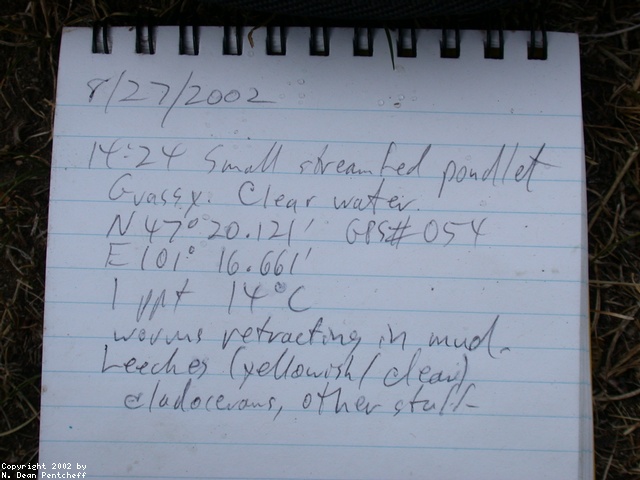 8/27/2002
14:24 Small streambed pondlet
Grassy. Clear water.
N 47° 20.121' GPS# 054
E 101° 16.661'
1 ppt 14°C
worms retracting in mud.
Leeches (yellowish/clear)
cladocerans, other stuff
Copyright 2002 by
N. Dean Pentcheff